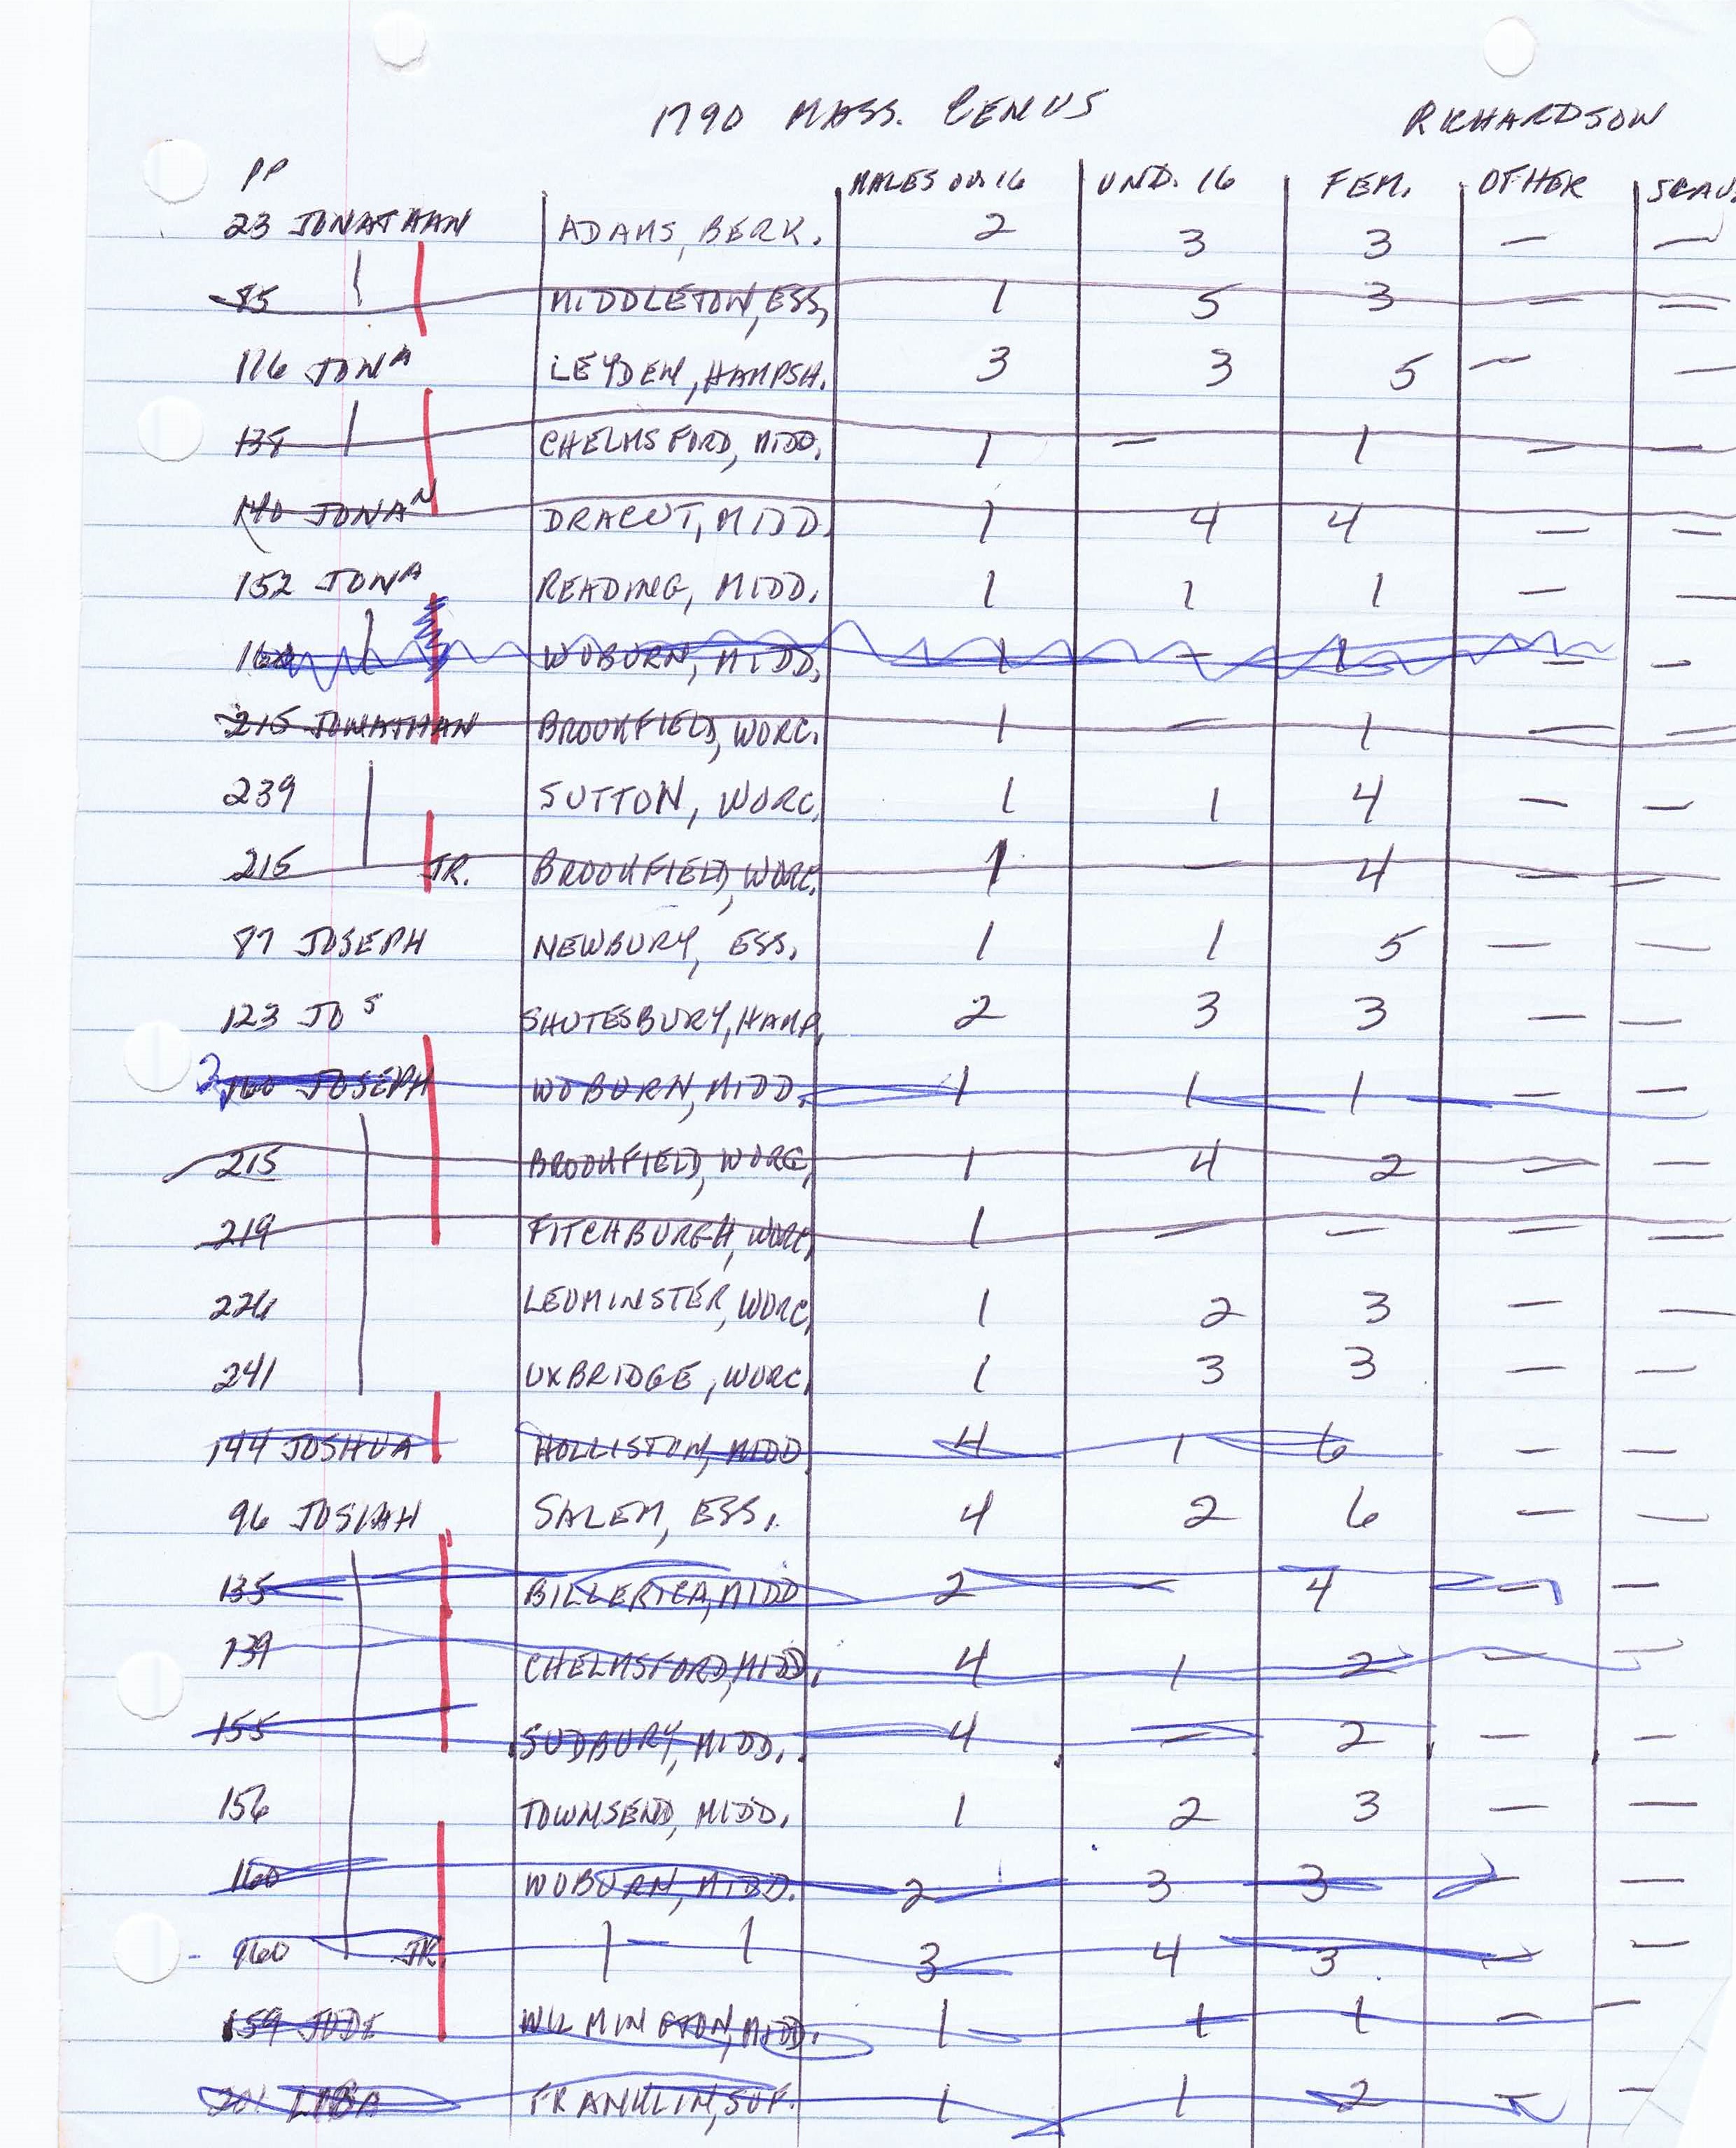 1790 MASS. CENUS RICHARDSON
PP MALES OVR 16 UND. 16 FEM. OTHER SLAV
23 JONATHAN ADAMS, BERK. 2 3 3 — —
85 MIDDLETON, ESS, 1 5 3 — —
116 JONA LEYDEN, HAMPSH. 3 3 5 — —
138 CHELMSFORD, MIDD. 1 — 1 — —
140 JONAN DRACUT, MIDD. 1 4 4 — —
152 JONA READING, MIDD. 1 1 1 — —
WOBURN, MIDD, 1 — 1 — —
215 JONATHAN BROOKFIELD, WORC. 1 — 1 — —
239 SUTTON, WORC. 1 1 4 — —
215 JR. BROOKFIELD, WORC. 1 — 4 — —
87 JOSEPH NEWBURY, ESS. 1 1 5 — —
123 JOS SHUTESBURY, HAMP. 2 3 3 — —
160 JOSEPH WOBURN, MIDD. 1 1 1 — —
215 BROOKFIELD, WORC, 1 4 2 — —
219 FITCHBURGH, WORC, 1 — — — —
226 LEOMINSTER, WORC, 1 2 3 — —
241 UXBRIDGE, WORC. 1 3 3 — —
144 JOSHUA HOLLISTON, MIDD 4 1 6 — —
96 JOSIAH SALEM, ESS. 4 2 6 — —
135 BILLERICA, MIDD 2 — 4 — —
139 CHELMSFORD, MIDD. 4 1 2 — —
155 SUDBURY, MIDD. 4 — 2 — —
156 TOWNSEND, MIDD. 1 2 3 — —
160 WOBURN, MIDD. 2 3 3 — —
160 JR. | — | 3 4 3 — —
159 JUDE WILMINGTON, MIDD. 1 1 1 — —
FRANKLIN, SUF. 1 1 2 — —